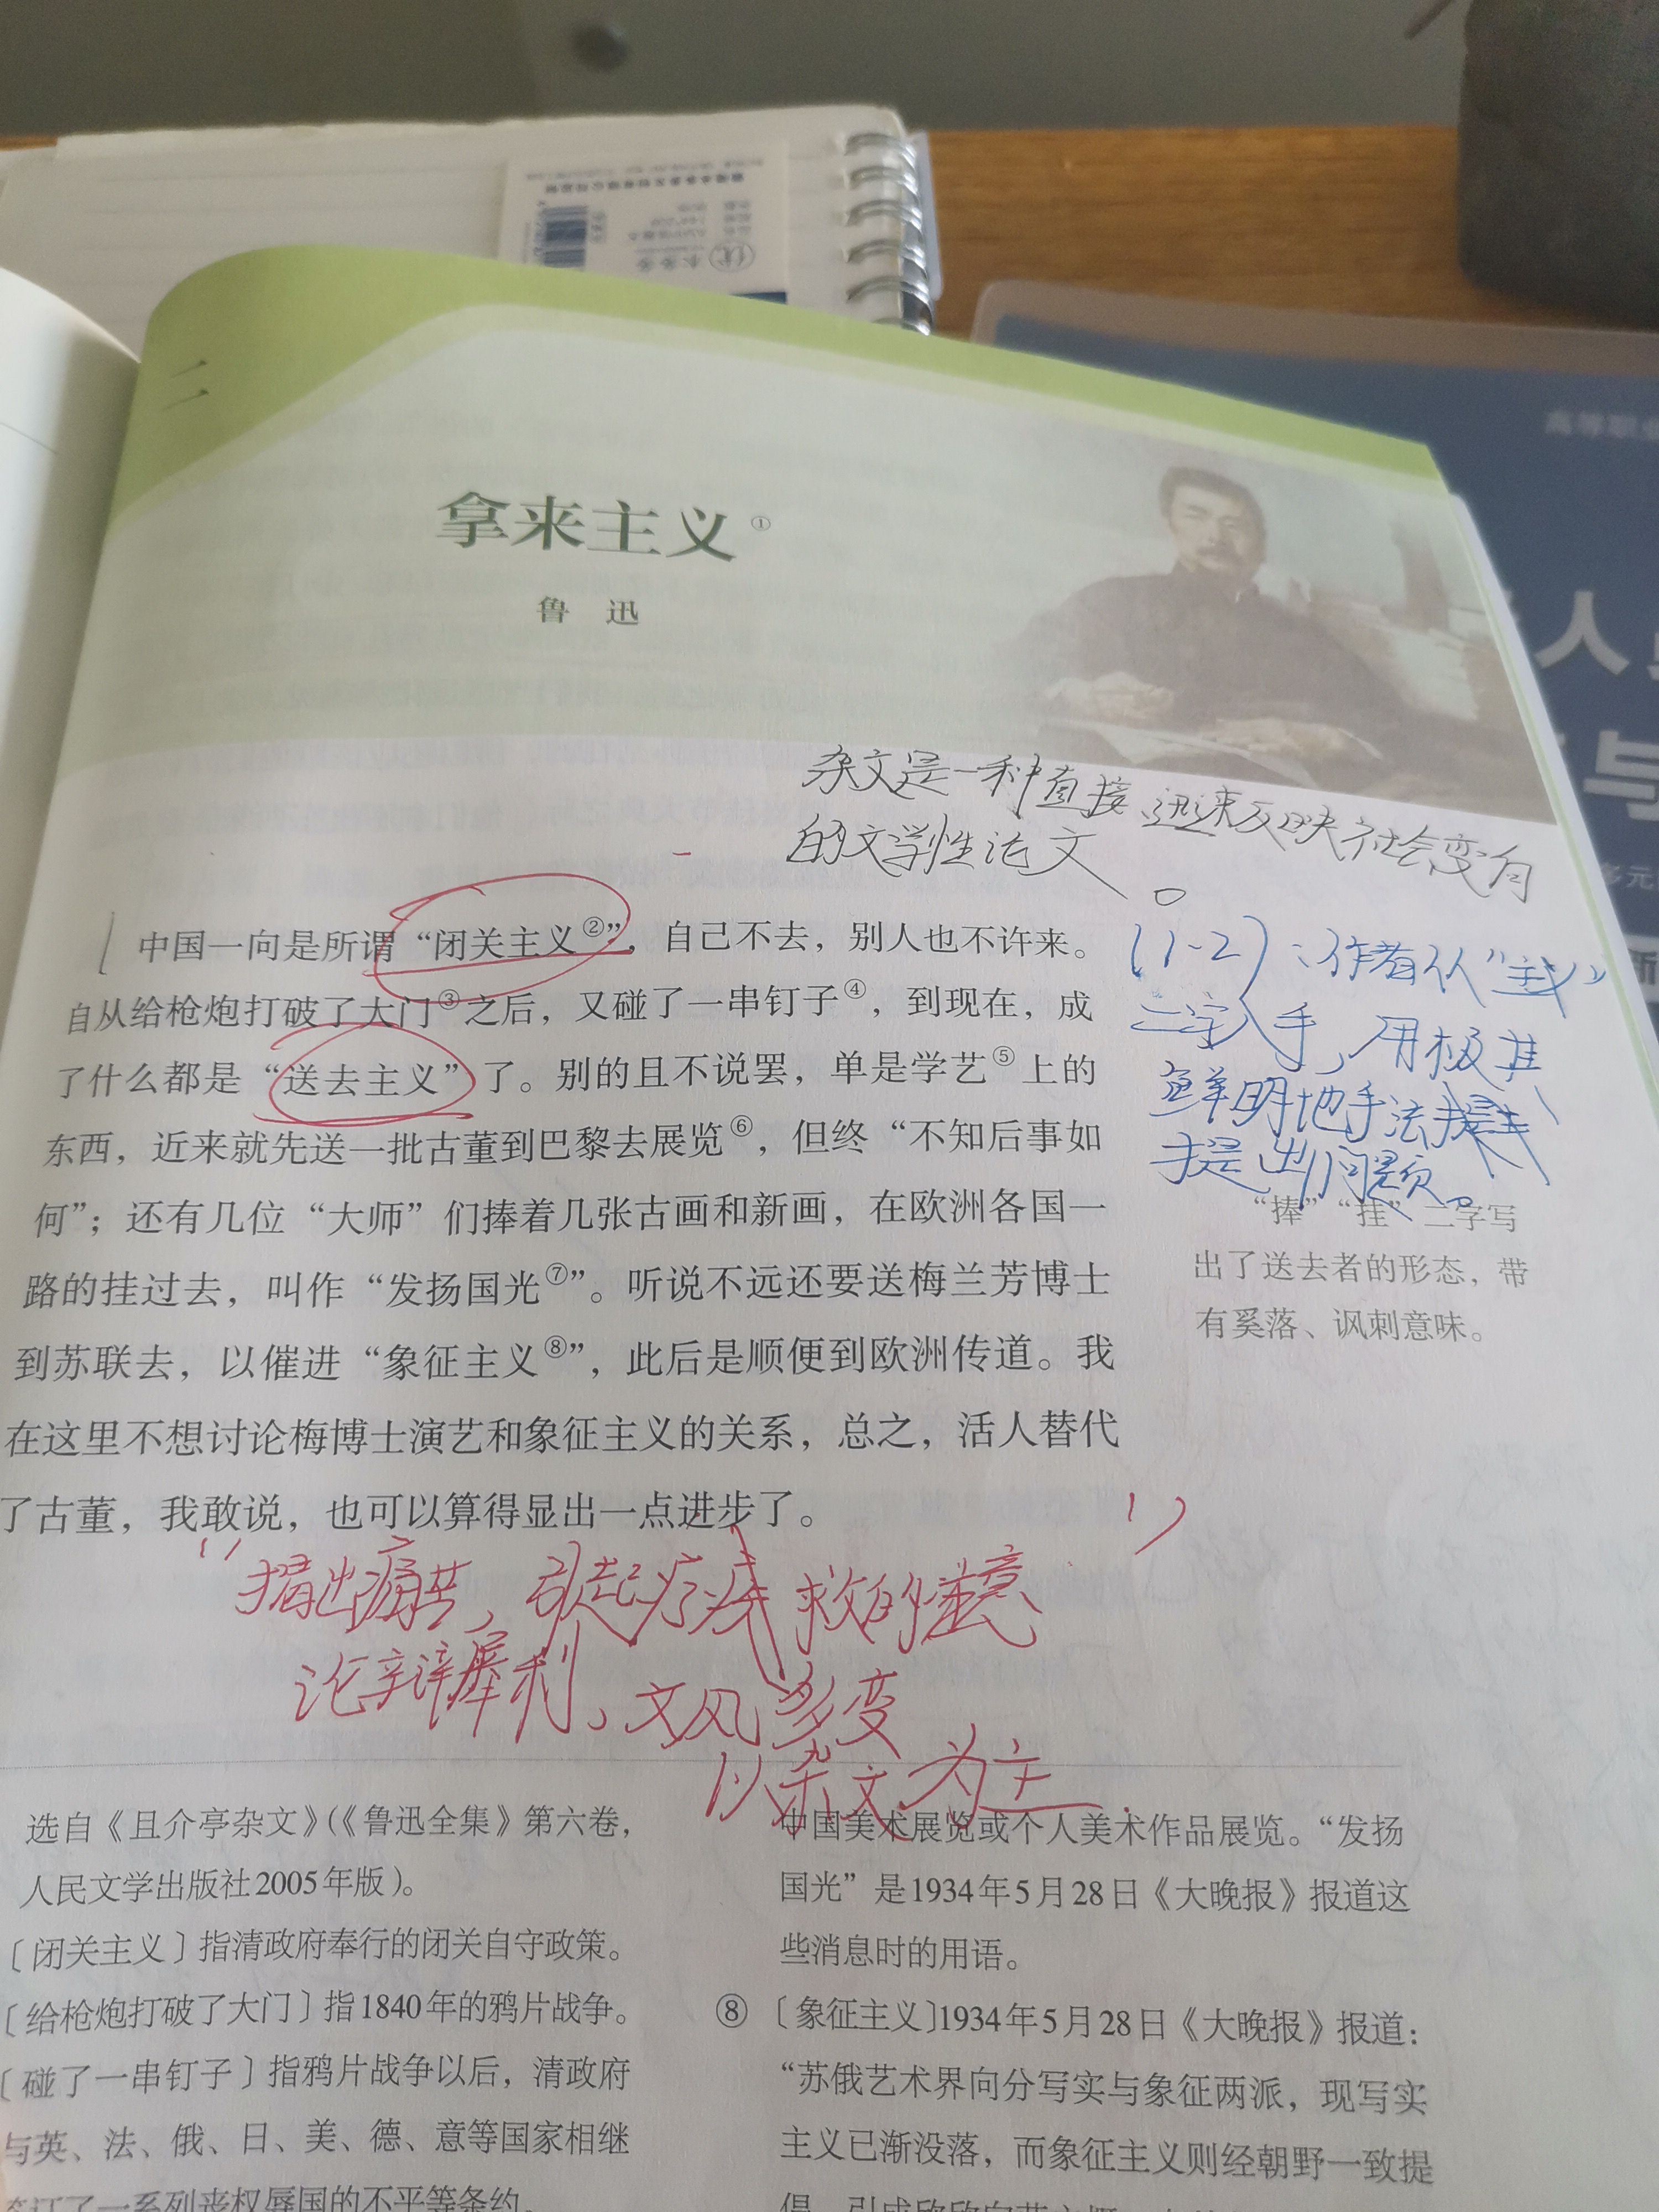 二
拿来主义①
鲁 迅
杂文是一种直接、迅速反映社会变向
的文学性论文。
中国一向是所谓“闭关主义②”，自己不去，别人也不许来。
自从给枪炮打破了大门③之后，又碰了一串钉子④，到现在，成
了什么都是“送去主义”了。别的且不说罢，单是学艺⑤上的
东西，近来就先送一批古董到巴黎去展览⑥，但终“不知后事如
何”；还有几位“大师”们捧着几张古画和新画，在欧洲各国一
路的挂过去，叫作“发扬国光⑦”。听说不远还要送梅兰芳博士
到苏联去，以催进“象征主义⑧”，此后是顺便到欧洲传道。我
在这里不想讨论梅博士演艺和象征主义的关系，总之，活人替代
了古董，我敢说，也可以算得显出一点进步了。
(1-2)：作者从“主义”
二字入手，用极其
鲜明地手法
提出问题。
“捧”“挂”二字写
出了送去者的形态，带
有奚落、讽刺意味。
“揭出痛苦，引起疗救的注意”
论辩犀利、文风多变
以杂文为主.
选自《且介亭杂文》（《鲁迅全集》第六卷，
人民文学出版社2005年版）。
〔闭关主义〕指清政府奉行的闭关自守政策。
〔给枪炮打破了大门〕指1840年的鸦片战争。
〔碰了一串钉子〕指鸦片战争以后，清政府
与英、法、俄、日、美、德、意等国家相继
签订了一系列丧权辱国的不平等条约。
中国美术展览或个人美术作品展览。“发扬
国光”是1934年5月28日《大晚报》报道这
些消息时的用语。
⑧〔象征主义〕1934年5月28日《大晚报》报道：
“苏俄艺术界向分写实与象征两派，现写实
主义已渐没落，而象征主义则经朝野一致提
高等职业
人
与
多元
新